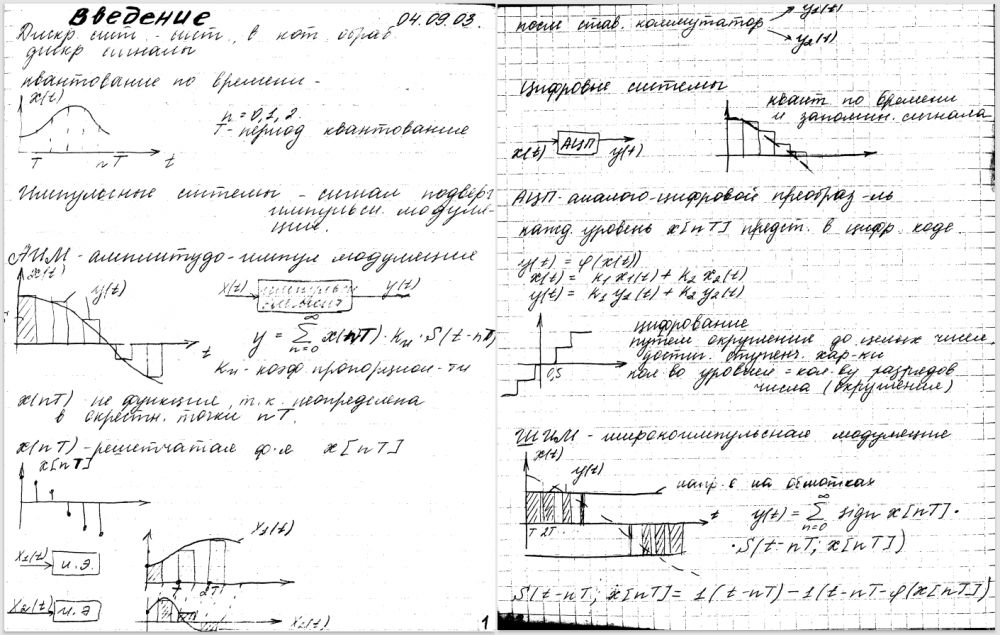 Введение 04.09.03.
Дискр. сист. - сист., в кот. обраб.
дискр сигналы
квантование по времени -
x(t)
n = 0,1,2
T - период квантование
T nT t
Импульсные системы - сигнал подверг
импульсн. модуля-
ции.
АИМ - амплитудо-импул модуляция
x(t)
y(t)
x(t) y(t)
t
y = ∑ x(nT) · kи · S(t-nT)
n=0 ∞
Kи - коэф пропорцион-ти
x(nT) - не функция, т.к. неопределена
в окрестн. точки nT.
x(nT) - решетчатая ф-я x[nT]
x[nT]
x1(t) и.э.
x1(t)
T 2T
x2(t) и.э
x2(t)
1
после став. коммутатор y1(t)
y2(t)
Цифровые системы
x(t) АЦП y(t)
квант по времени
и запомин. сигнала
АЦП - аналого-цифровой преобраз-ль
кажд. уровень x[nT] предст. в цифр. коде.
y(t) = φ(x(t))
x(t) = k1 x1(t) + k2 x2(t)
y(t) = k1 y2(t) + k2 y2(t)
0,5
цифрование
путем округления до целых чисел
достиг. ступенч. хар-ки
кол.во уровней = кол.ву разрядов
числа (округления)
ШИМ - широкоимпульсная модуляция
x(t)
y(t)
напр. е на обмотках
T 2T t
y(t) = ∑ sign x[nT] ·
n=0 ∞
· S(t-nT; x[nT])
S(t-nT; x[nT] = 1(t-nT) - 1(t-nT-φ(x[nT])